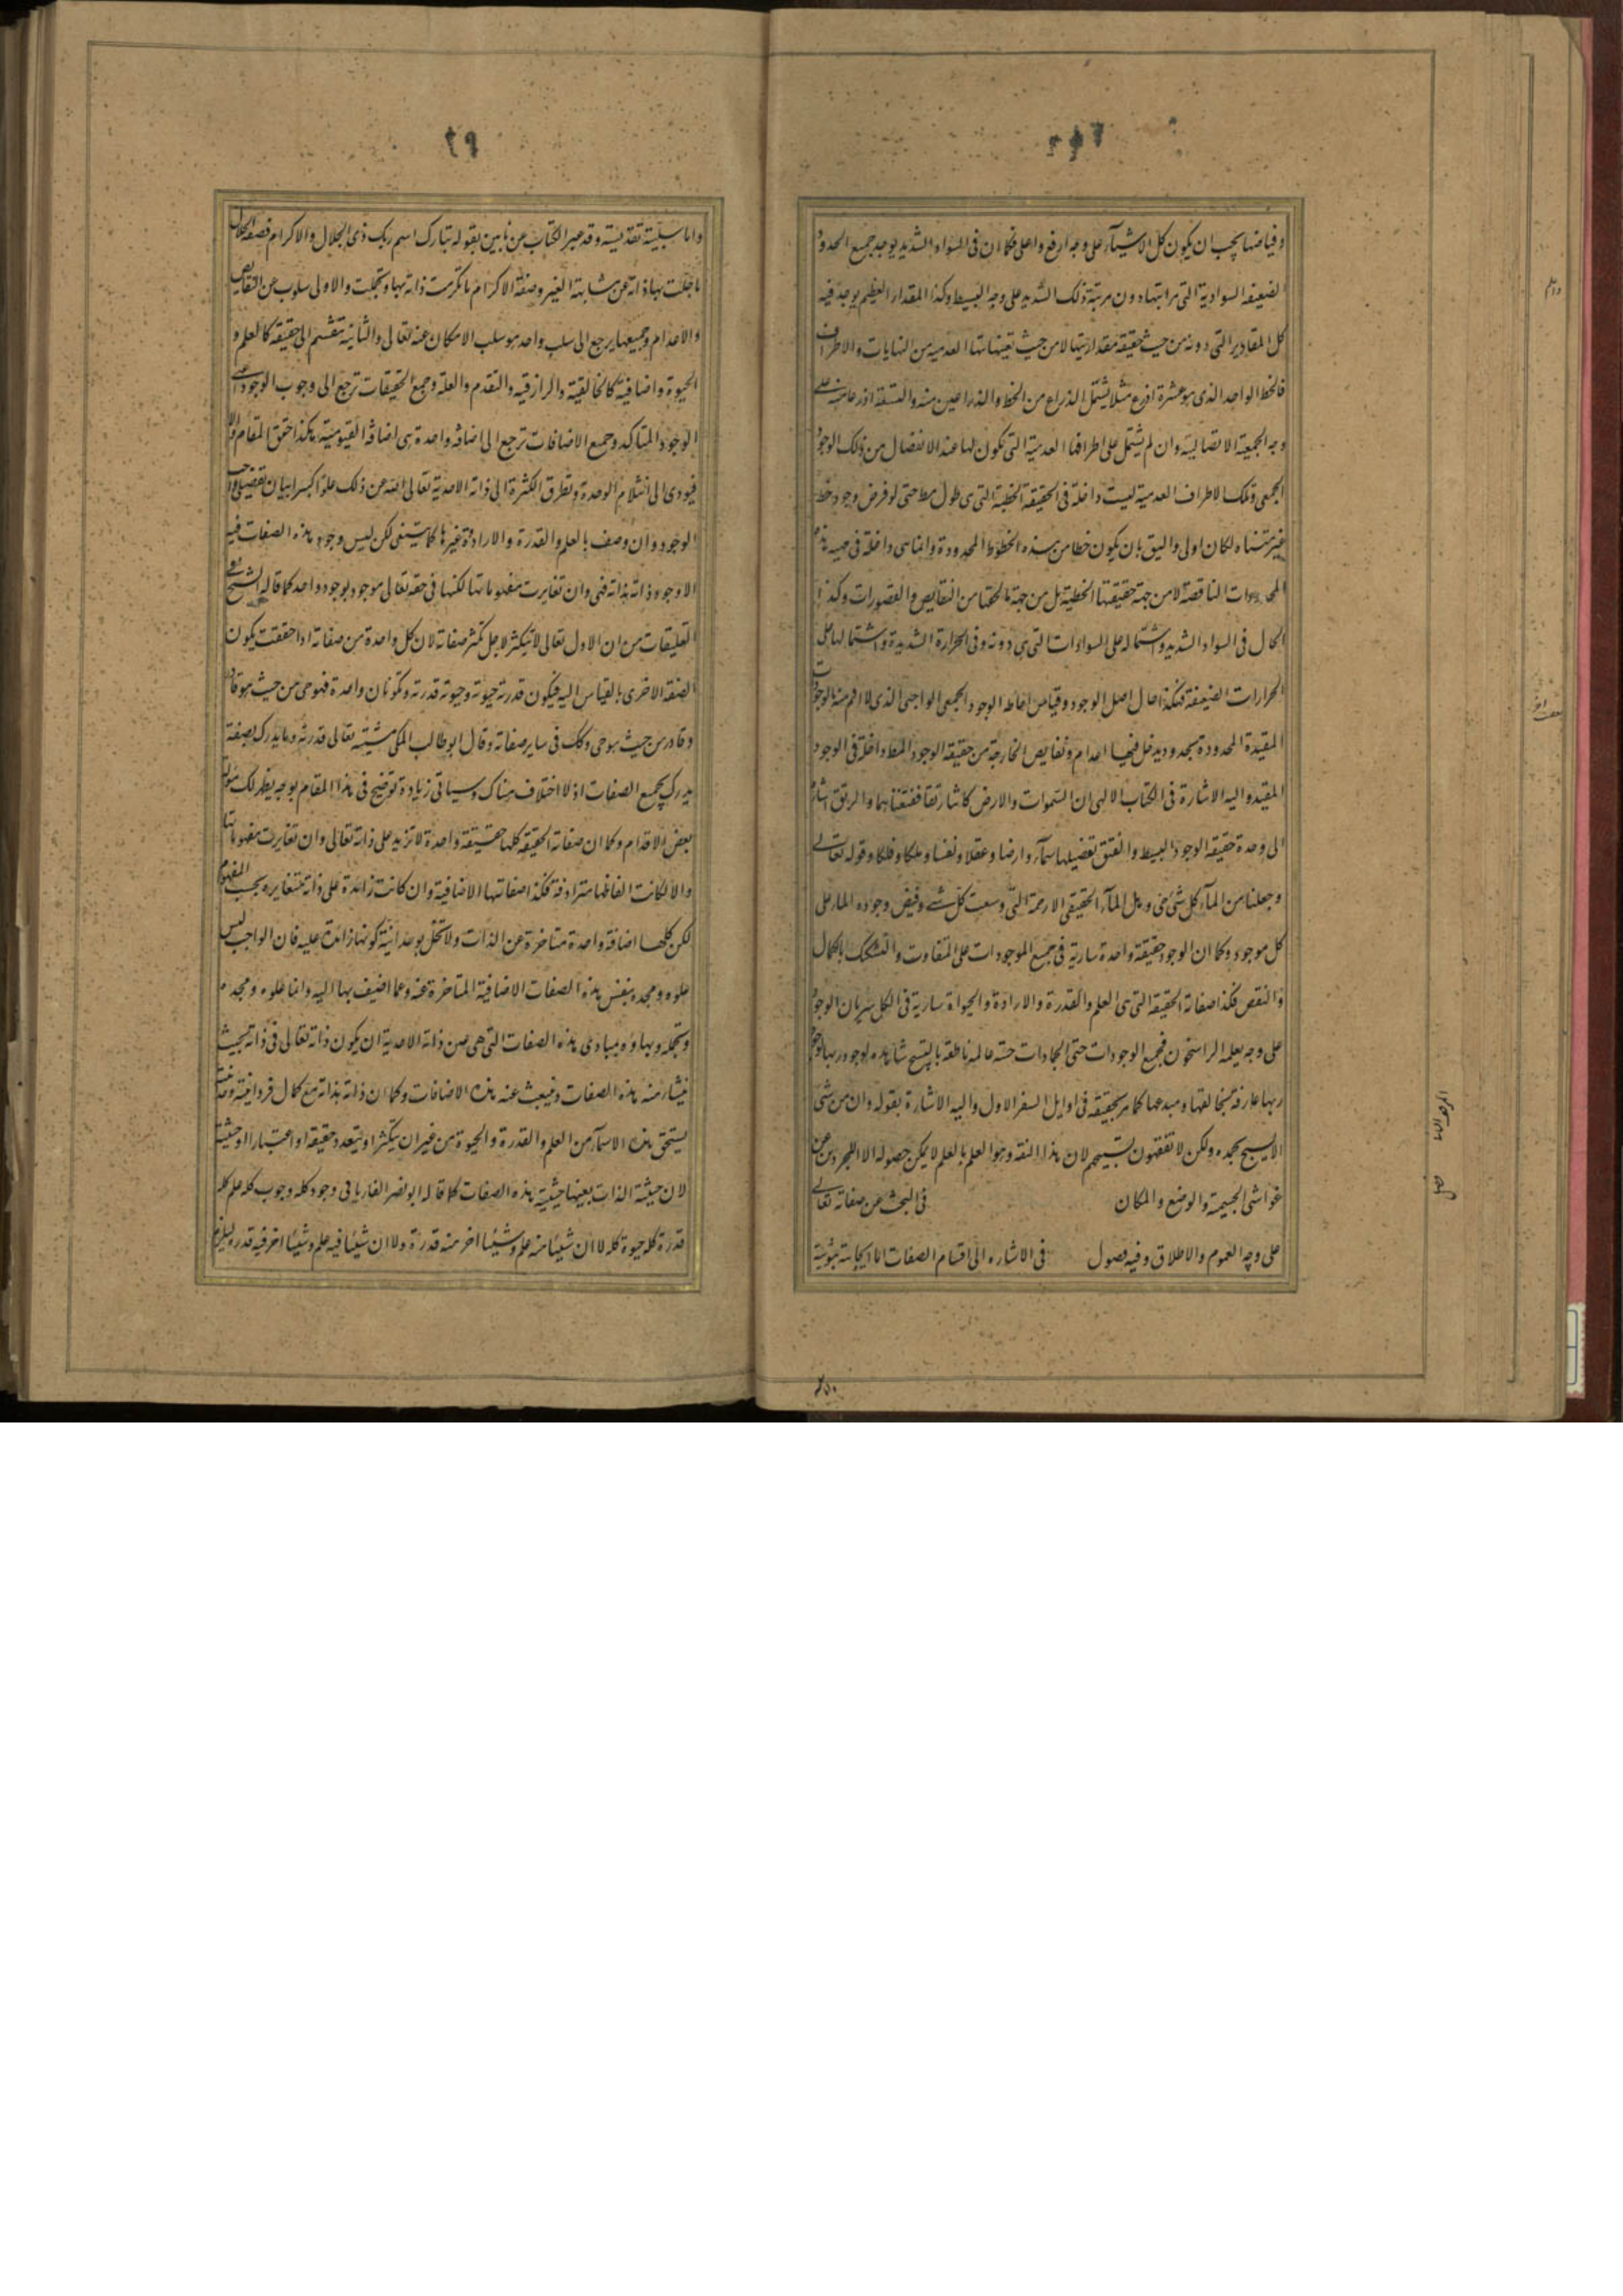 وفياضها يجب ان يكون كل الاشياء على وجه ارفع واعلى فكما ان فى السواد الشديد يوجد جميع الحدود
الضعيفه السوادية التى مراتبها دون مرتبة ذلك الشديد على وجه البسيط وكذا المقدار العظيم يوجد فيه
كل المقادير التى دونه من حيث حقيقه مقداريتها لا من حيث تعيناتها العدميه من النهايات والاطراف
فالخط الواحد الذى هو عشرة اذرع مثلا يشتمل الذراع من الخط والذراعين منه والتسعة اذرع منه على
وجه الجمعية الاتصالية وان لم يشتمل على اطرافها العدمية التى تكون لها عند الانفصال من ذلك الوجود
الجمعى وتلك الاطراف العدمية ليست داخلة فى الحقيقة الخطية التى هى طول مط حتى لو فرض وجود خط
غير متناه لكان اولى واليق بان يكون خطا من هذه الخطوط المحدودة وانما هى داخلة فى مهيه هذه
المحدودات الناقصة لا من جهة حقيقتها الخطية بل من جهة ما لحقها من النقايص والقصورات وكذا
الحال فى السواد الشديد واشتماله على السوادات التى هى دونه وفى الحرارة الشديدة واشتمالها على
الحرارات الضعيفة فهكذا حال اصل الوجود وقياس احاطه الوجود الجمعى الواجبى الذى لا اتم منه بالوجودات
المقيدة المحدودة بحدود يدخل فيها اعدام ونقايص الخارجة من حقيقه الوجود المط داخلة فى الوجود
المقيد واليه الاشارة فى الكتاب الالهى ان السموات والارض كانتا رتقا ففتقناهما والرتق اشارة
الى وحدة حقيقه الوجود البسيط والفتق تفصيلها سماء وارضا وعقلا ونفسا وملكا وفلكا وقوله تعالى
وجعلنا من الماء كل شئ حى وهل الماء الحقيقى الا رحمة التى وسعت كل شئ وفيض وجوده المار على
كل موجود وكما ان الوجود حقيقة واحدة سارية فى جميع الموجودات على التفاوت والتشكك بالكمال
والنقص فكذا صفاته الحقيقه التى هى العلم والقدرة والارادة والحيواة سارية فى الكل سريان الوجود
على وجه يعلمه الراسخون فجميع الوجودات حتى الجمادات حيته عالمه ناطقه بالتسبيح شاهده لوجود ربها
ربها عارفة بخالقها ومبدعها كما مر تحقيقه فى اوايل السفر الاول واليه الاشارة بقوله وان من شئ
الا يسبح بحمده ولكن لا تفقهون تسبيحهم لان هذا الفقه وهو العلم بالعلم لا يمكن حصوله الا للمجردين عن
غواشى الجسيمة والوضع والمكان فى البحث عن صفاته تعالى
على وجه العموم والاطلاق وفيه فصول فى الاشاره الى اقسام الصفات اما ايجابية ثبوتية
الموقف الثانى
فصل
واما سلبية تقديسية وقد عبر الكتاب عن هاتين بقوله تبارك اسم ربك ذى الجلال والاكرام فصفة الجلال
ما جلت بها ذاته عن مشابهة الغير وصفة الاكرام ما تكرمت ذاته بها وتجلت والاولى سلوب عن النقايص
والاعدام وجميعها يرجع الى سلب واحد هو سلب الامكان عنه تعالى والثانية تنقسم الى حقيقه كالعلم و
الحيوة واضافية كالخالقية والرازقيه والتقدم والعلة وجميع الحقيقات ترجع الى وجوب الوجود اعنى
الوجود المتاكد وجميع الاضافات ترجع الى اضافه واحدة هى اضافه القيومية هكذا حقق المقام والا
فيودى الى انثلام الوحدة وتطرق الكثرة الى ذاته الاحدية تعالى الله عن ذلك علوا كبيرا بيان تفصيلى واجب
الوجود وان وصف بالعلم والقدرة والارادة وغيرها كما سنبين لكن ليس وجود هذه الصفات فيه
الا وجود ذاته بذاته فهى وان تغايرت مفهوماتها لكنها فى حقه تعالى موجود بوجود واحد كما قال الشيخ فى
التعليقات من ان الاول تعالى لا يتكثر لاجل تكثر صفاته لان كل واحدة من صفاته اذا حققت يكون
الصفة الاخرى بالقياس اليه فيكون قدرته حيوته وحيوته قدرته وتكونان واحدة فهو حى من حيث هو قادر
وقادر من حيث هو حى وكك فى ساير صفاته وقال ابو طالب المكى مشيته تعالى قدرته وما يدرك بصفة
يدرك بجميع الصفات اذ لا اختلاف هناك وسياتى زيادة توضيح فى هذا المقام بوجه يظهر لك
بعض الاقدام وكما ان صفاته الحقيقه كلها حقيقة واحدة لا تزيد على ذاته تعالى وان تغايرت مفهوماتها
والا لكانت الفاظها مترادفة فكذا صفاتها الاضافية وان كانت زائدة على ذاته متغايره بحسب المفهوم
لكن كلها اضافه واحدة متاخرة عن الذات ولا تخل بوحدانية كونها زائدة عليه فان الواجب ليس
علوه ومجده بنفس هذه الصفات الاضافية المتاخرة عنه وعما اضيف بها اليه وانما علوه ومجده
وتجمله وبهاؤه بمبادى هذه الصفات التى هى عين ذاته الاحدية ان يكون ذاته تعالى فى ذاته بحيث
ينشا منه هذه الصفات وينبعث عنه هذه الاضافات وكما ان ذاته بذاته مع كمال فردانيته
يستحق هذه الاسماء من العلم والقدرة والحيوة من غير ان يتكثر او يتعدد حقيقه او اعتبارا او حيثية
لان حيثية الذات بعينها حيثية هذه الصفات كما قال ابو نصر الفاريابى وجود كله وجوب كله علم كله
قدرة كله حيوة كله لا ان شيئا منه علم وشيئا اخر منه قدرة ولا ان شيئا فيه علم وشيئا اخر فيه قدرة ليلزم